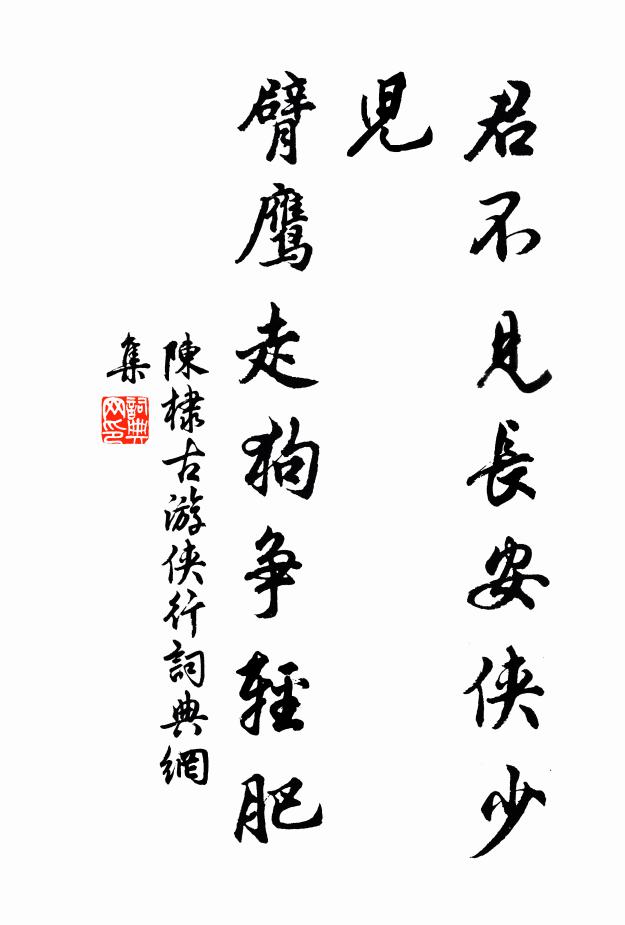 君不見長安俠少
児
臂鷹走狗争輕肥
陳棣古游俠行詞典網
集
詞典
网印